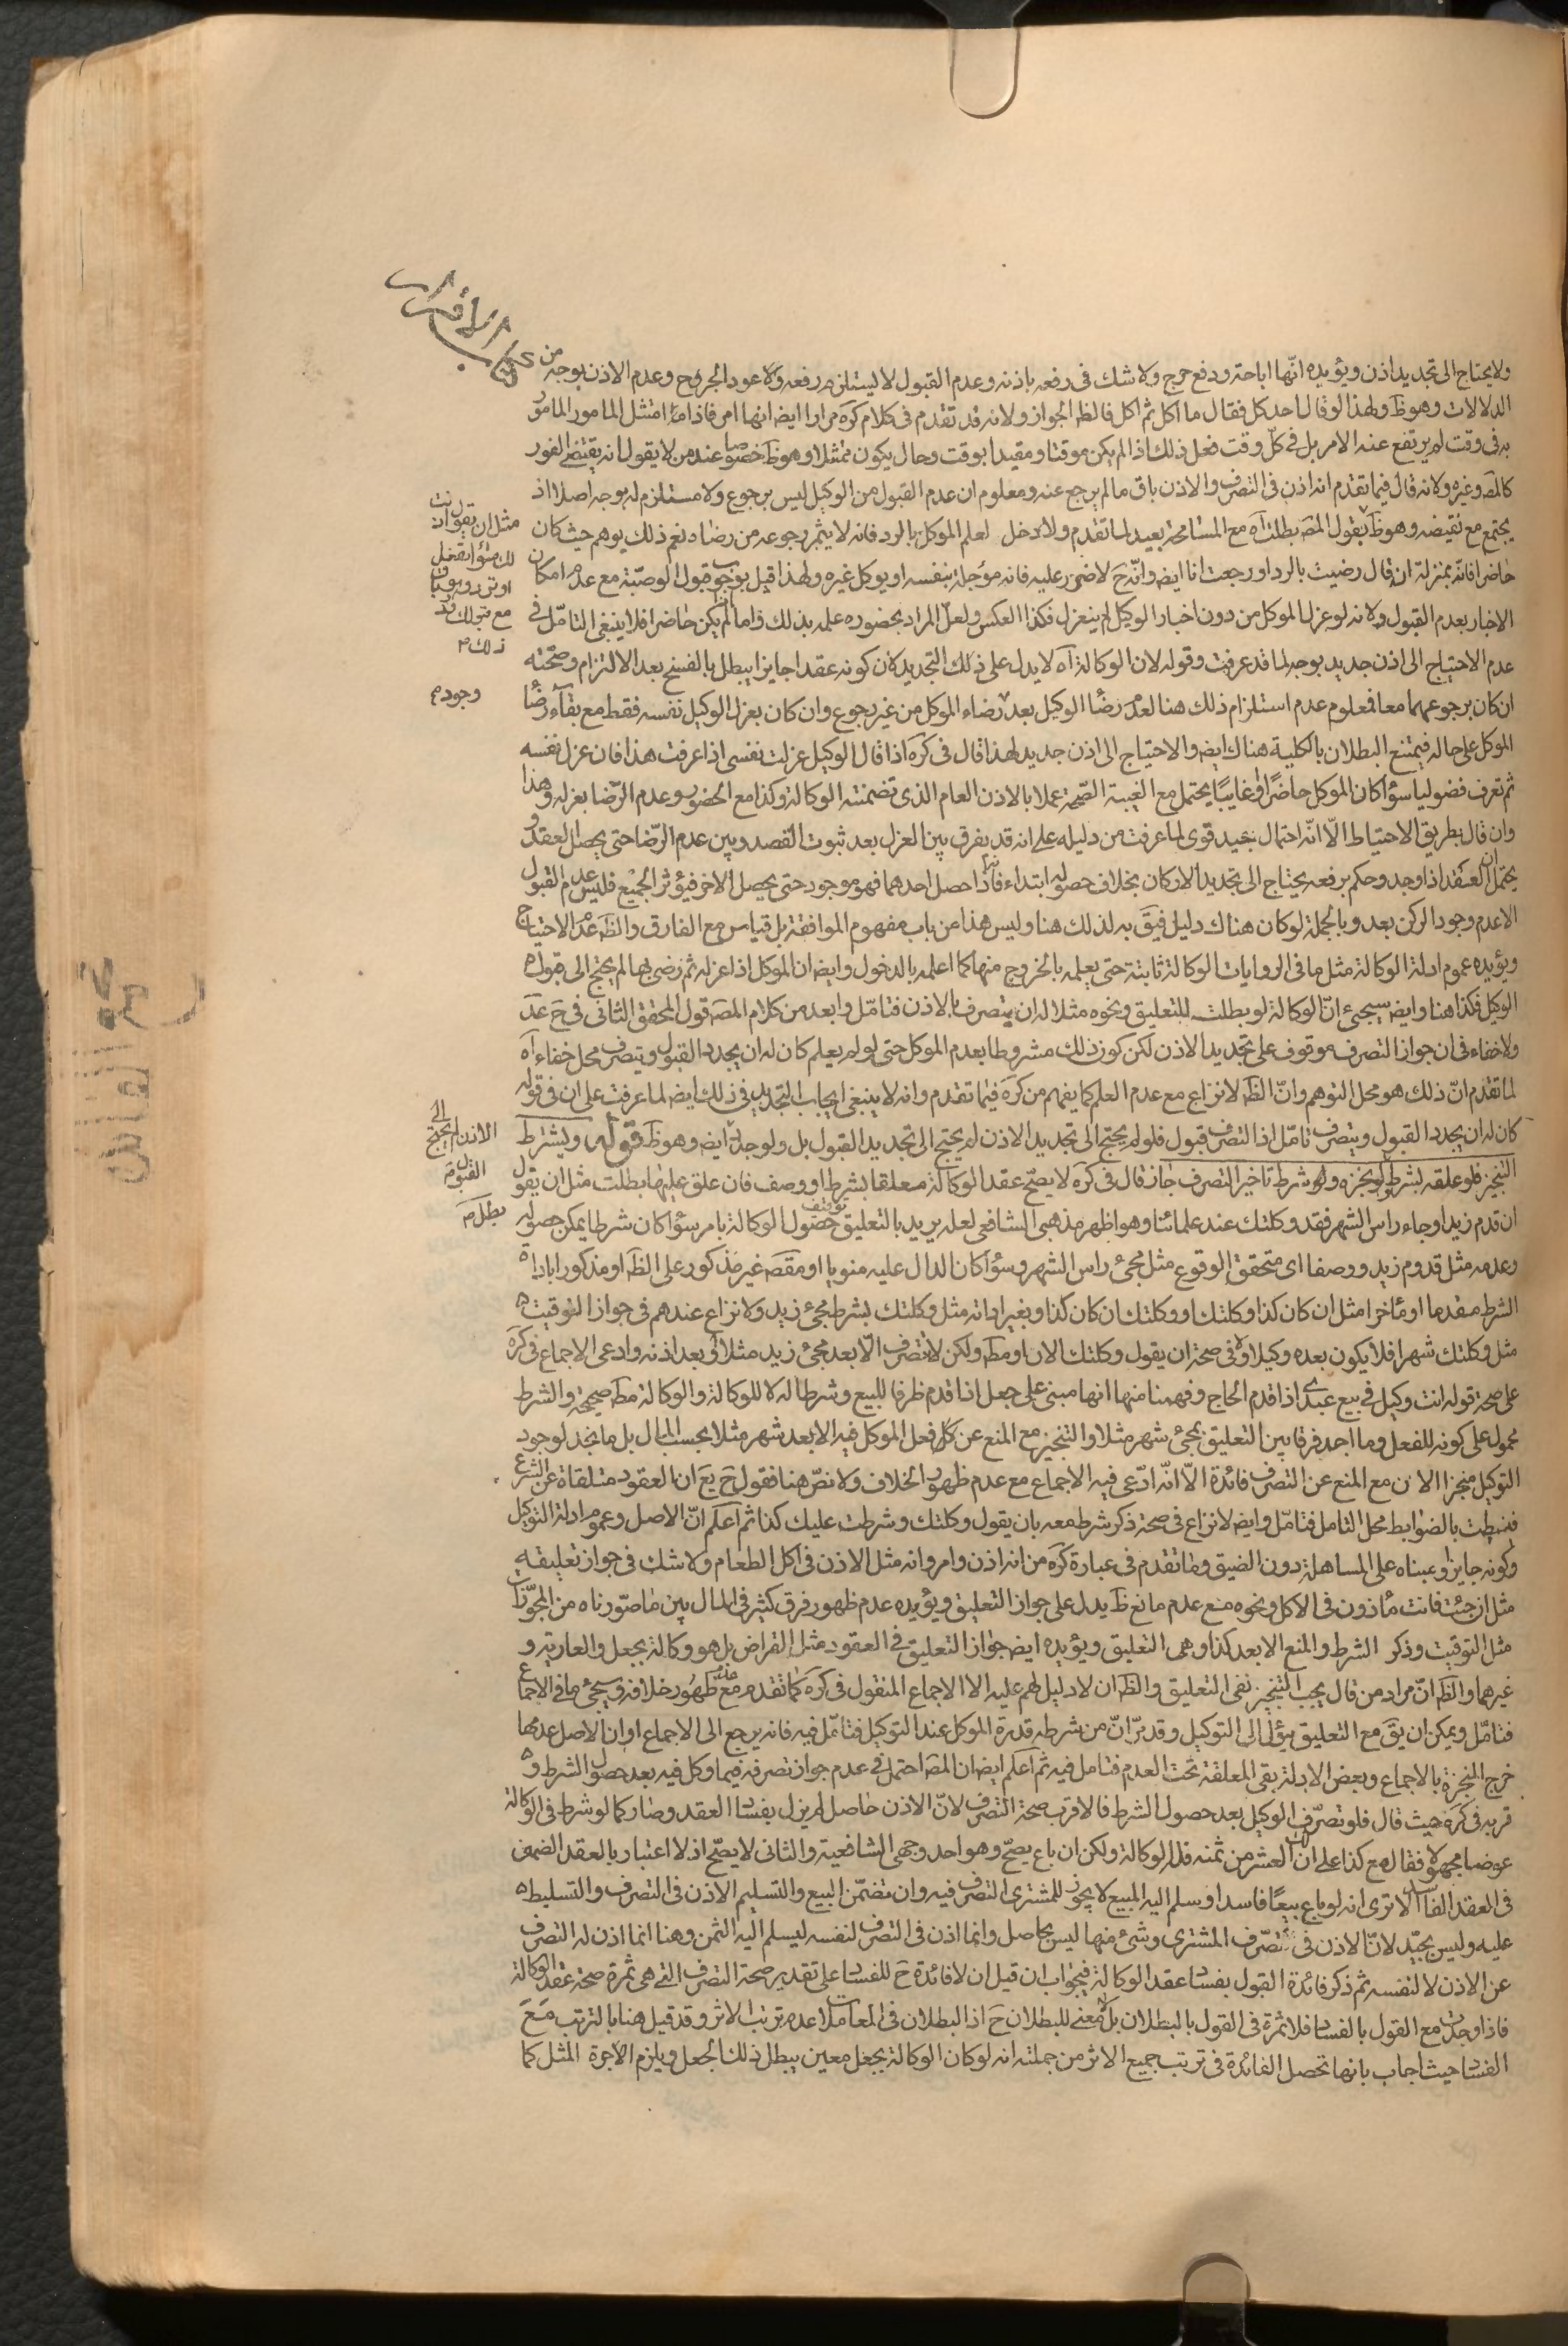 كتاب الاقرار
ولا يحتاج الى تجديد اذن ويؤيده انّها اباحة ودفع حرج ولا شك فى رفعه باذنه وعدم القبول لا يستلزم رفعه ولا عود الجروح وعدم الاذن بوجه من
الدلالات وهو ظَ ولهذا لو قال احد كل فقال ما آكل ثم اكل فالظَ الجواز ولانه قد تقدم فى كلام كره مرارا ايضَ انها امر فاذا امتثل المامور المامور
به فى وقت لم يرتفع عنه الامر بل فى كلّ وقت فعل ذلك اذا لم يكن موقتا ومقيدا بوقت وحال يكون ممتثلا وهو ظَ خصوصا عند من لا يقول انه يقتضى الفور
كالمصَ وغيره ولانه قال فيما تقدم انه اذن فى التصرف والاذن باق ما لم يرجع عنه ومعلوم ان عدم القبول من الوكيل ليس برجوع ولا مستلزم له بوجه اصلا اذ
يجتمع مع نقيضه وهو ظَ فقول المصَ بطلت آه مع المسامحة بعيد لما تقدم ولا دخل لعلم الموكل بالرد فانه لا يثمر رجوعه من رضاه نعم ذلك يوهم حيث كان
حاضرا فانّه بمنزلة ان قال رضيت بالرد او رجعت انا ايضَ وانّه حَ لا ضرر عليه فانه مؤجلة بنفسه او يوكل غيره ولهذا قيل بوجوب قبول الوصيّة مع عدم امكان
الاخبار بعدم القبول ولانه لو عزل الموكل من دون اخبار الوكيل لم ينعزل فكذا العكس ولعلّ المراد بحضوره علمه بذلك واما اذا لم يكن حاضرا فلا ينبغى التامّل فى
عدم الاحتياج الى اذن جديد بوجه لما قد عرفت وقوله لان الوكالة آه لا يدل على ذلك التجديد لان كونه عقدا جايزا يبطل بالفسخ بعد الالتزام وصحّته
ان كان برجوعهما معا فمعلوم عدم استلزام ذلك هنا لعدم رضا الوكيل بعد رضاء الموكل من غير رجوع وان كان بعزل الوكيل نفسه فقط مع بقاء رضا
الموكل على حاله فيمتنع البطلان بالكلية هناك ايضَ والاحتياج الى اذن جديد لهذا قال فى كره اذا قال الوكيل عزلت نفسى اذا عرفت هذا فان عزل نفسه
ثم تصرف فضوليا سواء كان الموكل حاضرًا او غايبًا يحتمل مع الغيبة الصّحة عملا بالاذن العام الذى تضمنته الوكالة وكذا مع الحضور وعدم الرّضا بعزله وهذا
وان قال بطريق الاحتياط الّا انّه احتمال جيد قوى لما عرفت من دليله على انه قد يفرق بين العزل بعد ثبوت القصد وبين عدم الرّضا حتى يحصل العقد و
يحتمل ان العقد اذا وجد وحكم برفعه يحتاج الى تجديد الاركان بخلاف حصوله ابتداء فانه اذا حصل احدهما فهو موجود حتى يحصل الاخر فيؤثر الجميع فليس عدم القبول
الا عدم وجود الركن بعد وبالجملة لو كان هناك دليل فيقَ به لذلك هنا وليس هذا من باب مفهوم الموافقة بل قياس مع الفارق والظَ عدم الاحتياج
ويؤيده عموم ادلة الوكالة مثل ما فى الروايات الوكالة ثابتة حتى يعلمه بالخروج منها كما اعلمه بالدخول وايضَ ان الموكل اذا عزله ثم رضى بها لم يحتج الى قبول
الوكيل فكذا هنا وايضَ سيجىء انّ الوكالة لو بطلت للتعليق ونحوه مثلا له ان يتصرف بالاذن فتامّل وابعد من كلام المصَ قول المحقق الثانى فى حَ عَدَ
ولا خفاء فى ان جواز التصرف موقوف على تجديد الاذن لكن كون ذلك مشروطا بعدم الموكل حتى لو لم يعلم كان له ان يجدد القبول ويتصرف محل خفاء آه
لما تقدم انّ ذلك هو محل التوهم وانّ الظَ لا نزاع مع عدم العلم كما يفهم من كره فيما تقدم وانه لا ينبغى ايجاب التجديد فى ذلك ايضَ لما عرفت على ان فى قوله
كان له ان يجدد القبول ويتصرف تامّل اذ التصرف قبول فلو لم يحتج الى تجديد الاذن لم يحتج الى تجديد القبول بل ولو جدد ايضَ وهو ظَ قوله ويشترط
التنجيز فلو علقه بشرط لم يجز ولو شرط تاخير التصرف جاز قال فى كره لا يصحّ عقد الوكالة معلقا بشرط او وصف فان علق عليها بطلت مثل ان يقول
ان قدم زيد او جاء راس الشهر فقد وكلتك عند علمائنا وهو اظهر مذهبى الشافعى لعله يريد بالتعليق توقف حصول الوكالة بامر سواء كان شرطا يمكن حصوله
وعدمه مثل قدوم زيد ووصفا اى متحقق الوقوع مثل مجىء راس الشهر وسواء كان الدال عليه منويا او مقصَ غير مذكور على الظَ او مذكورا باداة
الشرط مقدما او مؤخرا مثل ان كان كذا وكلتك او وكلتك ان كان كذا وبغير اداته مثل وكلتك بشرط مجىء زيد ولا نزاع عندهم فى جواز التوقيت
مثل وكلتك شهرا فلا يكون بعده وكيلا ولا فى صحة ان يقول وكلتك الان او مطَ ولكن لا تتصرف الّا بعد مجىء زيد مثلا او بعد اذنه وادعى الاجماع فى كره
على صحة قوله انت وكيل فى بيع عبدى اذا قدم الحاج وفهمنا منها انها مبنى على جعل اذا قدم ظرفا للبيع وشرطا له لا للوكالة والوكالة مطَ صحيحة والشرط
محمول على كونه للفعل وما اجد فرقا بين التعليق بمجىء شهر مثلا والتنجيز مع المنع عن كل فعل الموكل فيه الا بعد شهر مثلا بحسب المال بل ما نجد لوجود
التوكيل منجزا الان مع المنع عن التصرف فائدة الّا انّه ادّعى فيه الاجماع مع عدم ظهور الخلاف ولا نصّ هنا فقول حَ يعَ ان العقود متلقاة عن الشرع
فنيطت بالضوابط محل التامل فتامّل وايضَ لا نزاع فى صحة ذكر شرط معه بان يقول وكلتك وشرطت عليك كذا ثم اعلم انّ الاصل وعموم ادلة التوكيل
وكونه جايزا ومبناه على المساهلة دون الضيق وما تقدم فى عبارة كره من انه اذن وامر وانه مثل الاذن فى اكل الطعام ولا شك فى جواز تعليقه
مثل ان جئت فانت مأذون فى الاكل ونحوه منع عدم مانع ظَ يدل على جواز التعليق ويؤيده عدم ظهور فرق كثير فى المال بين ما صوّرناه من المجوّزات
مثل التوقيت وذكر الشرط والمنع الا بعد كذا وهى التعليق ويؤيده ايضَ جواز التعليق فى العقود مثل القراض بل هو وكالة بجعل والعارية و
غيرهما والظَ انّ مراد من قال يجب التنجيز نفى التعليق والظَ ان لا دليل لهم عليه الا الاجماع المنقول فى كره كما تقدم مع عدم ظهور خلافه وسيجىء ما فى الاجماع
فتامّل ويمكن ان يقَ مع التعليق يؤل الى التوكيل وقد مرّ انّ من شرطه قدرة الموكل عند التوكيل فتامّل فيه فانه يرجع الى الاجماع او ان الاصل عدمها
خرج المنجزة بالاجماع وبعض الادلة بقى المعلقة تحت العدم فتامل فيه ثم اعلم ايضَ ان المصَ احتمل فى عدم جواز تصرفه فيما وكل فيه بعد حصول الشرط و
قربه فى كره حيث قال فلو تصرّف الوكيل بعد حصول الشرط فالاقرب صحة التصرف لانّ الاذن حاصل لم يزل بفساد العقد وصار كما لو شرط فى الوكالة
عوضا مجهولا فقال بع كذا على ان لك العشر من ثمنه فلا الوكالة ولكن ان باع يصحّ وهو احد وجهى الشافعية والثانى لا يصحّ اذ لا اعتبار بالعقد الضمنى
فى العقد الفاسد الا ترى انه لو باع بيعًا فاسدا وسلم اليه المبيع لا يجوز للمشترى التصرف فيه وان تضمّن البيع والتسليم الاذن فى التصرف والتسليط
عليه وليس بجيّد لانّ الاذن فى تصرّف المشترى وشىء منها ليس بحاصل وانما اذن فى التصرف لنفسه ليسلم اليه الثمن وهنا انما اذن له التصرف
عن الاذن لا لنفسه ثم ذكر فائدة القول بفساد عقد الوكالة فيجواب ان قيل ان لا فائدة حَ للفساد على تقدير صحة التصرف التى هى ثمرة صحة عقد الوكالة
فاذا وجدت مع القول بالفساد فلا ثمرة فى القول بالبطلان بل لا معنى للبطلان حَ اذ البطلان فى المعاملات عدم ترتب الاثر وقد قيل هنا بالترتب مَعَ
الفساد حيث اجاب بانها تحصل الفائدة فى ترتب جميع الاثر من جملته انه لو كان الوكالة بجعل معين يبطل ذلك الجعل ويلزم الاجرة المثل كما
مثل ان تقول انت
وجوده
الى
الاذن لم يحتج
القبول
بطل